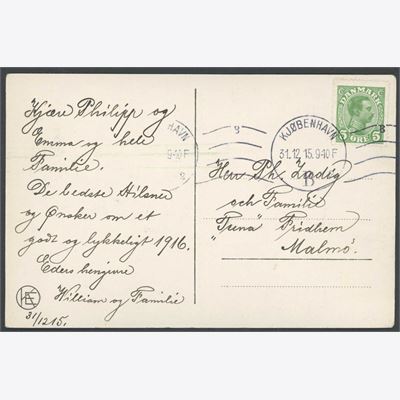 Kjære Philipp og
Emma og hele
Familie.
De bedste Hilsner
og Ønsker om et
godt og lykkeligt 1916.
Eders hengivne
William og Familie
31/12 15.
HAVN
9-10 F
8
8
KJØBENHAVN
31.12.15. 9-10 F
B
8
DANMARK
5 ØRE 5
Herr Ph.
och Familie
Fridhem
Malmö.